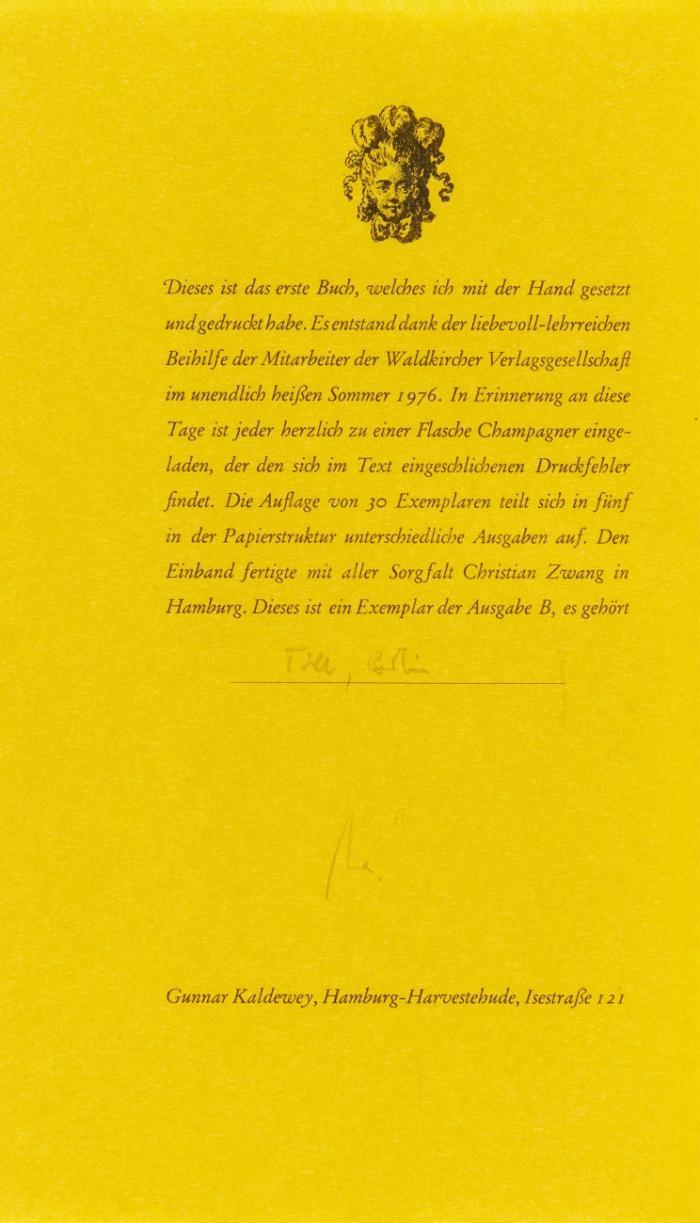 Dieses ist das erste Buch, welches ich mit der Hand gesetzt
und gedruckt habe. Es entstand dank der liebevoll-lehrreichen
Beihilfe der Mitarbeiter der Waldkircher Verlagsgesellschaft
im unendlich heißen Sommer 1976. In Erinnerung an diese
Tage ist jeder herzlich zu einer Flasche Champagner einge-
laden, der den sich im Text eingeschlichenen Druckfehler
findet. Die Auflage von 30 Exemplaren teilt sich in fünf
in der Papierstruktur unterschiedliche Ausgaben auf. Den
Einband fertigte mit aller Sorgfalt Christian Zwang in
Hamburg. Dieses ist ein Exemplar der Ausgabe B, es gehört
Gunnar Kaldewey, Hamburg-Harvestehude, Isestraße 121